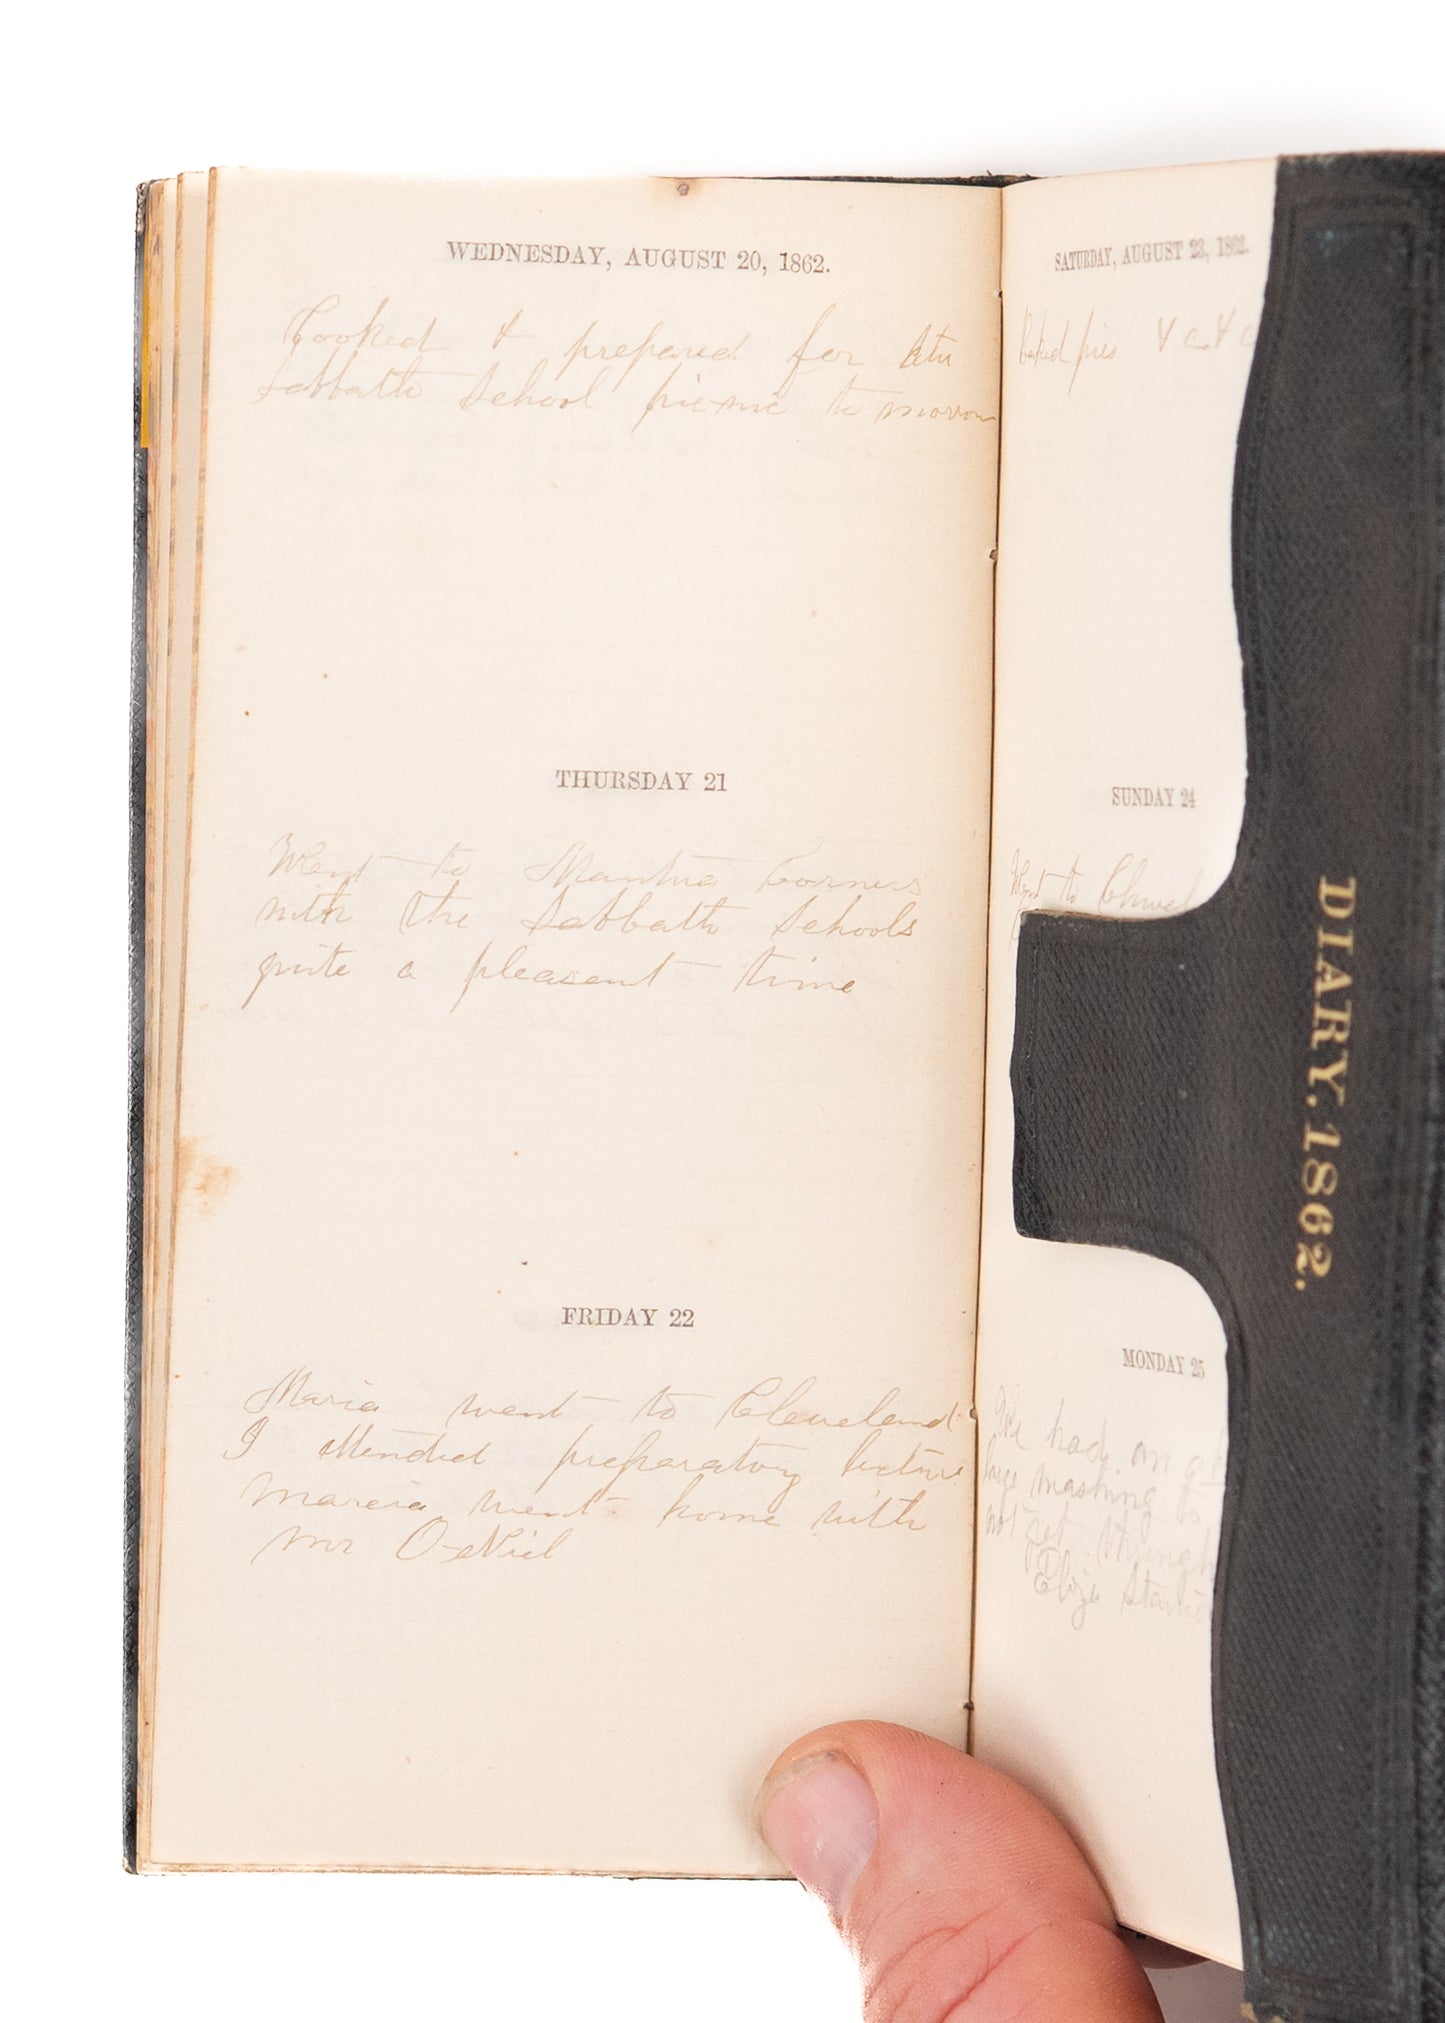 WEDNESDAY, AUGUST 20, 1862.
Cooked & prepared for the
Sabbath School picnic to morrow
THURSDAY 21
Went to Mantua Corners
with the Sabbath Schools
quite a pleasant time
FRIDAY 22
Maria went to Cleveland
I attended preparatory lecture
Marcia went home with
Mr O-Niel
SATURDAY, AUGUST 23, 1862.
Baked pies & c & c
SUNDAY 24
Went to Church
MONDAY 25
We had an
large washing
not get through
Eliza
DIARY. 1862.